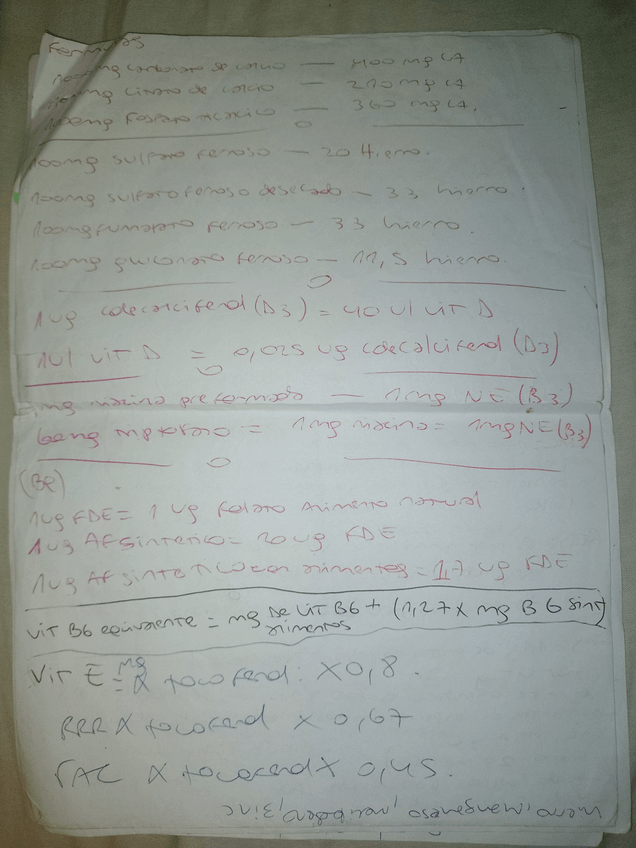 Formulas
1000mg carbonato de calcio — 400 mg CA
1000mg citrato de calcio — 210 mg CA
1000mg fosfato tricalcico — 360 mg CA.
100mg sulfato ferroso — 20 Hierro.
100mg sulfato ferroso desecado — 33 hierro.
100mg fumarato ferroso — 33 hierro.
100mg gluconato ferroso — 11,5 hierro.
1ug colecalciferol (D3) = 40 UI vit D
1UI vit D = 0,025 ug colecalciferol (D3)
1mg niacina preformada — 1mg NE (B3)
60mg triptofano = 1mg niacina = 1mg NE (B3)
1ug FDE = 1 ug folato alimento natural
1ug AF sintetico = 20 ug FDE
1ug AF sintetico con alimentos = 1,7 ug FDE
Vit B6 equivalente = mg de vit B6 alimentos + (1,27 x mg B6 sint)
Vit E = mg α tocoferol: x 0,8.
RRR α tocoferol x 0,67
rAC α tocoferol x 0,45.
manganeso, zinc